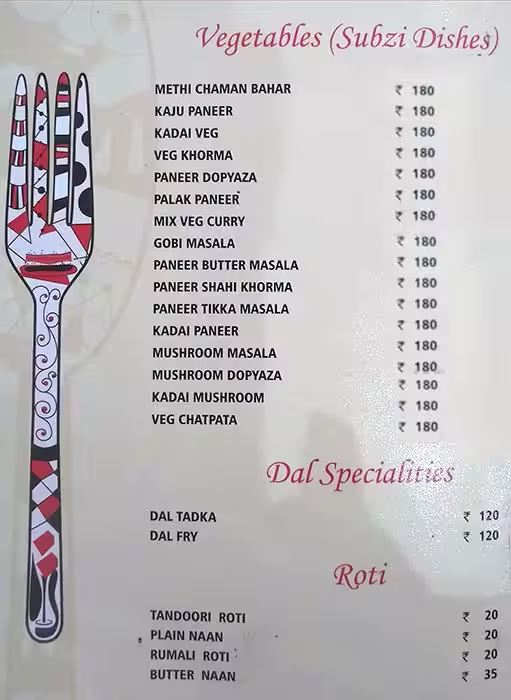 Vegetables (Subzi Dishes)
METHI CHAMAN BAHAR ₹ 180
KAJU PANEER ₹ 180
KADAI VEG ₹ 180
VEG KHORMA ₹ 180
PANEER DOPYAZA ₹ 180
PALAK PANEER ₹ 180
MIX VEG CURRY ₹ 180
GOBI MASALA ₹ 180
PANEER BUTTER MASALA ₹ 180
PANEER SHAHI KHORMA ₹ 180
PANEER TIKKA MASALA ₹ 180
KADAI PANEER ₹ 180
MUSHROOM MASALA ₹ 180
MUSHROOM DOPYAZA ₹ 180
KADAI MUSHROOM ₹ 180
VEG CHATPATA ₹ 180
Dal Specialities
DAL TADKA ₹ 120
DAL FRY ₹ 120
Roti
TANDOORI ROTI ₹ 20
PLAIN NAAN ₹ 20
RUMALI ROTI ₹ 20
BUTTER NAAN ₹ 35